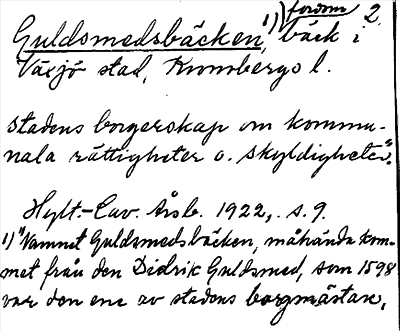 fordom 2.
Guldsmedsbäcken,¹⁾ bäck i
Växjö stad, Kronobergs l.
stadens borgerskap om kommu-
nala rättigheter o. skyldigheter."
Hylt.-Cav. Årsb. 1922, s. 9.
1) "Namnet Guldsmedsbäcken, måhända kom-
met från den Didrik Guldsmed, som 1598
var den ene av stadens borgmästare,